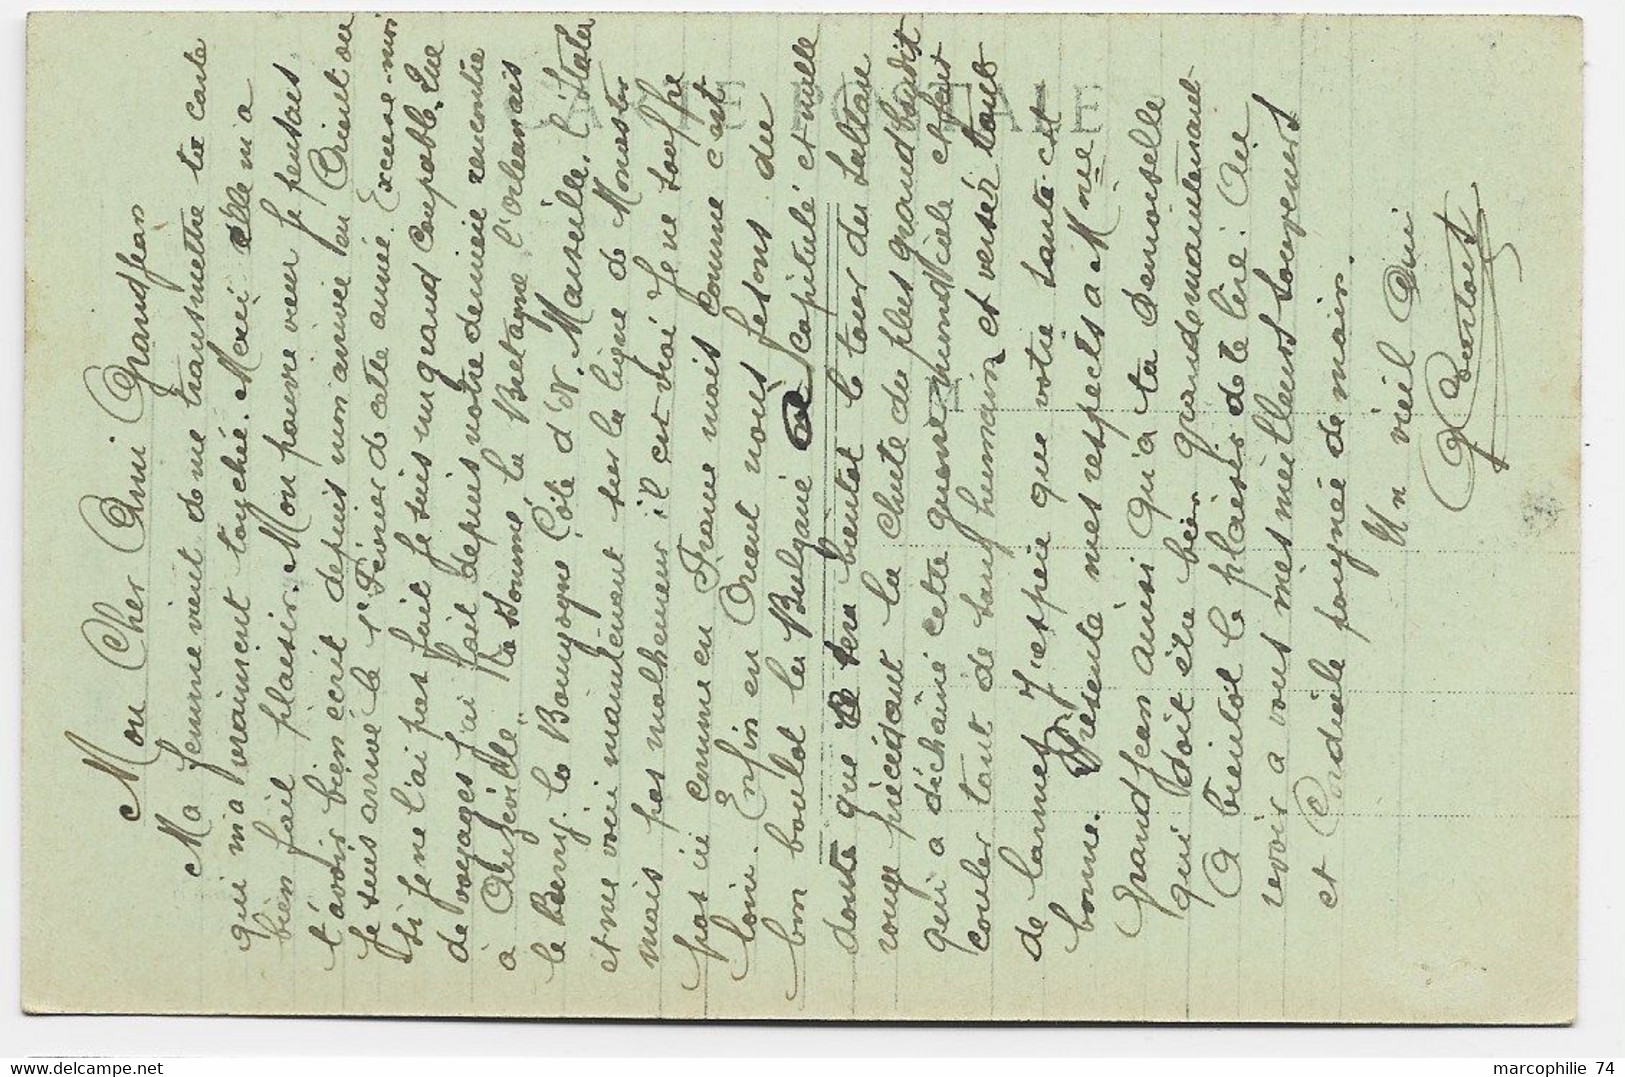 Mon Cher Ami Grandjean
Ma femme vient de me transmettre ta carte
qui m'a vraiment touché. Merci elle m'a
bien fait plaisir. Mon pauvre vieux je pensais
t'avoir bien écrit depuis mon arrivée en Orient ou
je suis arrivé le 1er Février de cete année. Excuse-moi
si je ne l'ai pas fait je suis un grand coupable. Que
de voyages j'ai fait depuis notre dernière rencontre
à la Somme la Bretagne l'Orleannais
le Berry. la Bourgogne Côte d'Or. Marseille. l'Italie
et me voici maintenant sur la ligne de Monastir
mais pas malheureux il est vrai je ne souffre
pas ici comme en France mais comme c'est
loin. Enfin en Orient nous fesons du
bon boulot la Bulgarie a capitulé et nulle
doute que ce sera bientot le tour du Sultan
rouge précédant la chute du plus grand bandit
qui a déchainé cette guerre mundiele et fait
couler tant de sang humain et versér tant
de larmes. J'espère que votre santé est
bonne. Presente mes respects a Mme
Grandjean ainsi qu'a ta Demoiselle
qui doit être bien grande maintenant
A bientot le plaisir de te lire. Au
revoir a vous mes meilleurs souvenirs
et Cordiale poignée de main.
Un vieil Ami
CARTE POSTALE
marcophilie 74